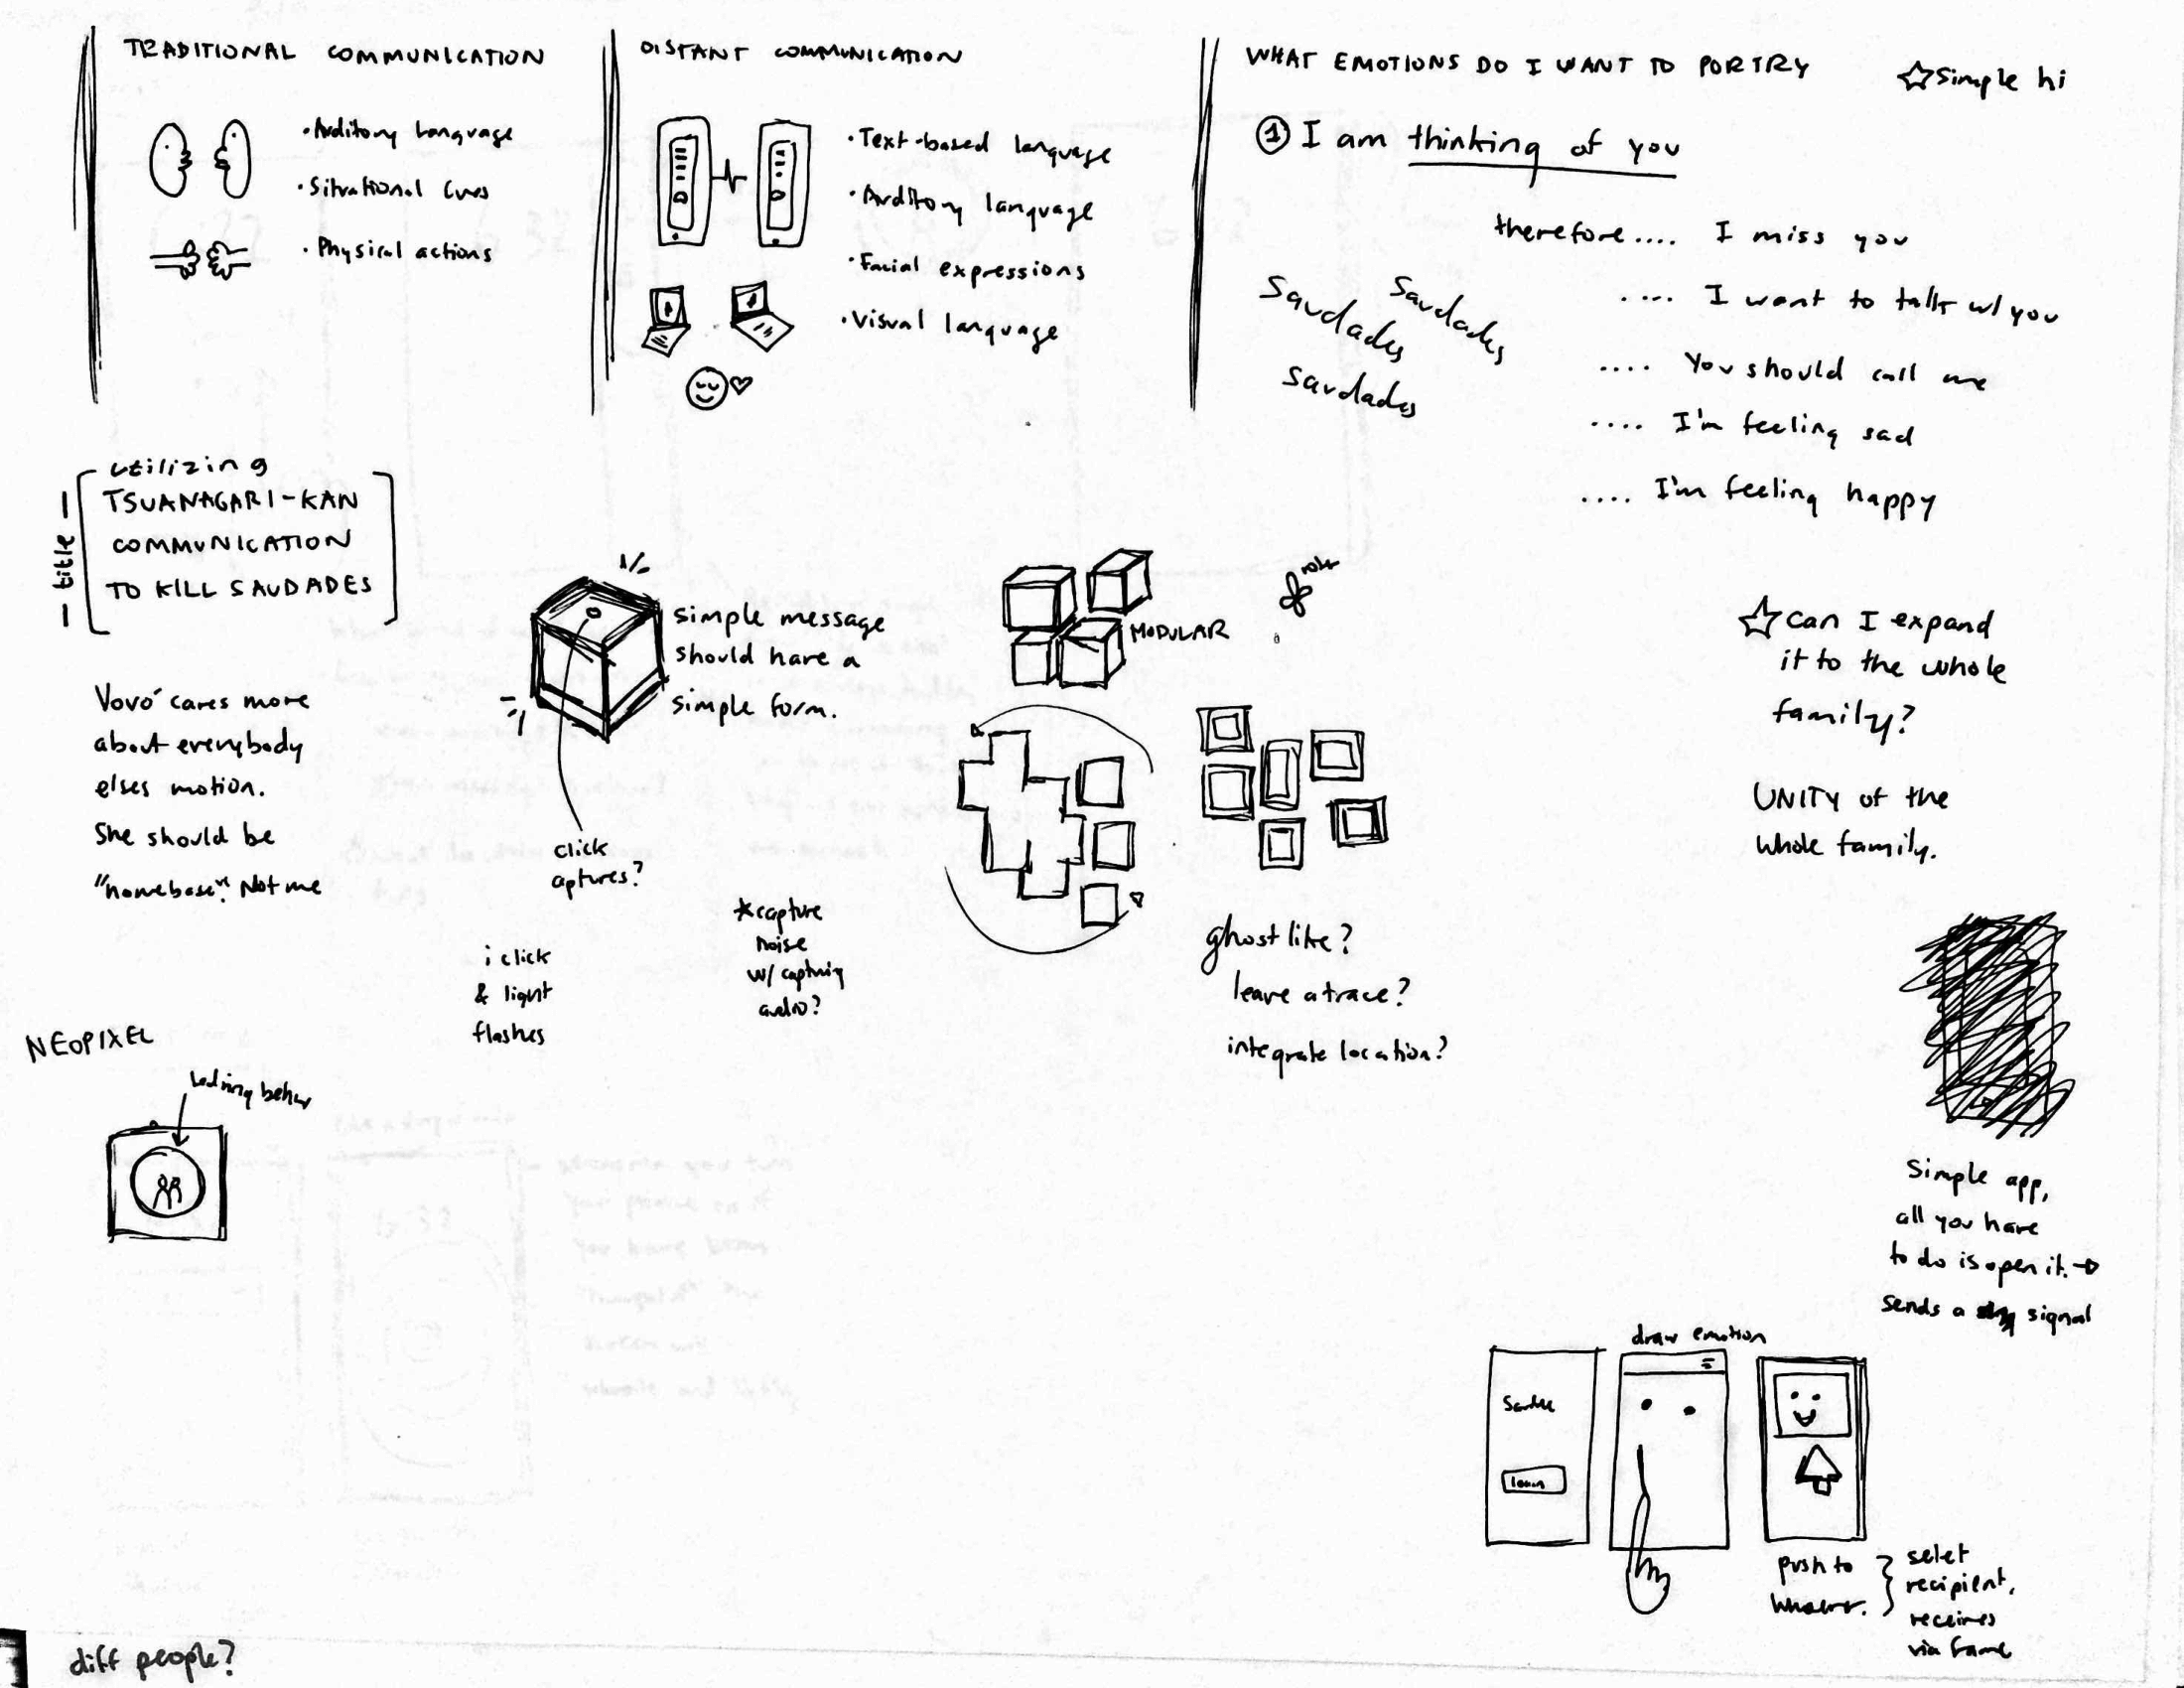 TRADITIONAL COMMUNICATION
• Auditory language
• Situational cues
• Physical actions
DISTANT COMMUNICATION
• Text-based language
• Auditory language
• Facial expressions
• Visual language
WHAT EMOTIONS DO I WANT TO PORTRY
☆ Simple hi
① I am thinking of you
therefore.... I miss you
.... I want to talk w/ you
.... You should call me
.... I'm feeling sad
.... I'm feeling happy
Saudades
Saudades
Saudades
- title -
utilizing
TSUANAGARI-KAN
COMMUNICATION
TO KILL SAUDADES
Vovó cares more
about everybody
elses motion.
She should be
"homebase". Not me
simple message
should have a
simple form.
click
aptures?
i click
& light
flashes
*capture
noise
w/ capturing
audio?
MODULAR
ghostlike?
leave a trace?
integrate location?
☆ can I expand
it to the whole
family?
UNITY of the
whole family.
NEOPIXEL
Simple app,
all you have
to do is open it. →
sends a signal
draw emotion
login
push to
whoever.
selet
recipient,
receives
via frame
diff people?